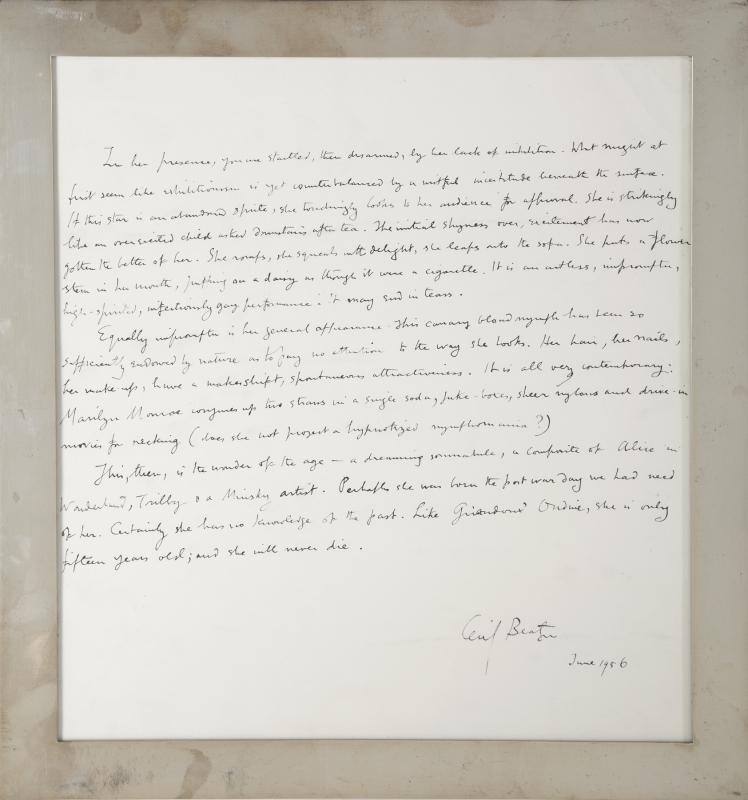 In her presence, you are startled, then disarmed, by her lack of inhibition. What might at
first seem like exhibitionism is yet counterbalanced by a wistful incertitude beneath the surface.
If this star is an abandoned sprite, she touchingly looks to her audience for approval. She is strikingly
like an overexcited child asked downstairs after tea. The initial shyness over, excitement has now
gotten the better of her. She romps, she squeals with delight, she leaps onto the sofa. She puts a flower
stem in her mouth, puffing on a daisy as though it were a cigarette. It is an artless, impromptu,
high-spirited, infectiously gay performance. It may end in tears.
Equally impromptu is her general appearance. This canary blond nymph has been so
sufficiently endowed by nature as to pay no attention to the way she looks. Her hair, her nails,
her make-up, have a makeshift, spontaneous attractiveness. It is all very contemporary:
Marilyn Monroe conjures up two straws in a single soda, juke-boxes, sheer nylons and drive-in
movies for necking (does she not project a hypnotized nymphomania?)
This, then, is the wonder of the age — a dreaming somnambule, a composite of Alice in
Wonderland, Trilby & a Minsky artist. Perhaps she was born the post war day we had need
of her. Certainly she has no knowledge of the past. Like Giraudoux' Ondine, she is only
fifteen years old; and she will never die.
Cecil Beaton
June 1956